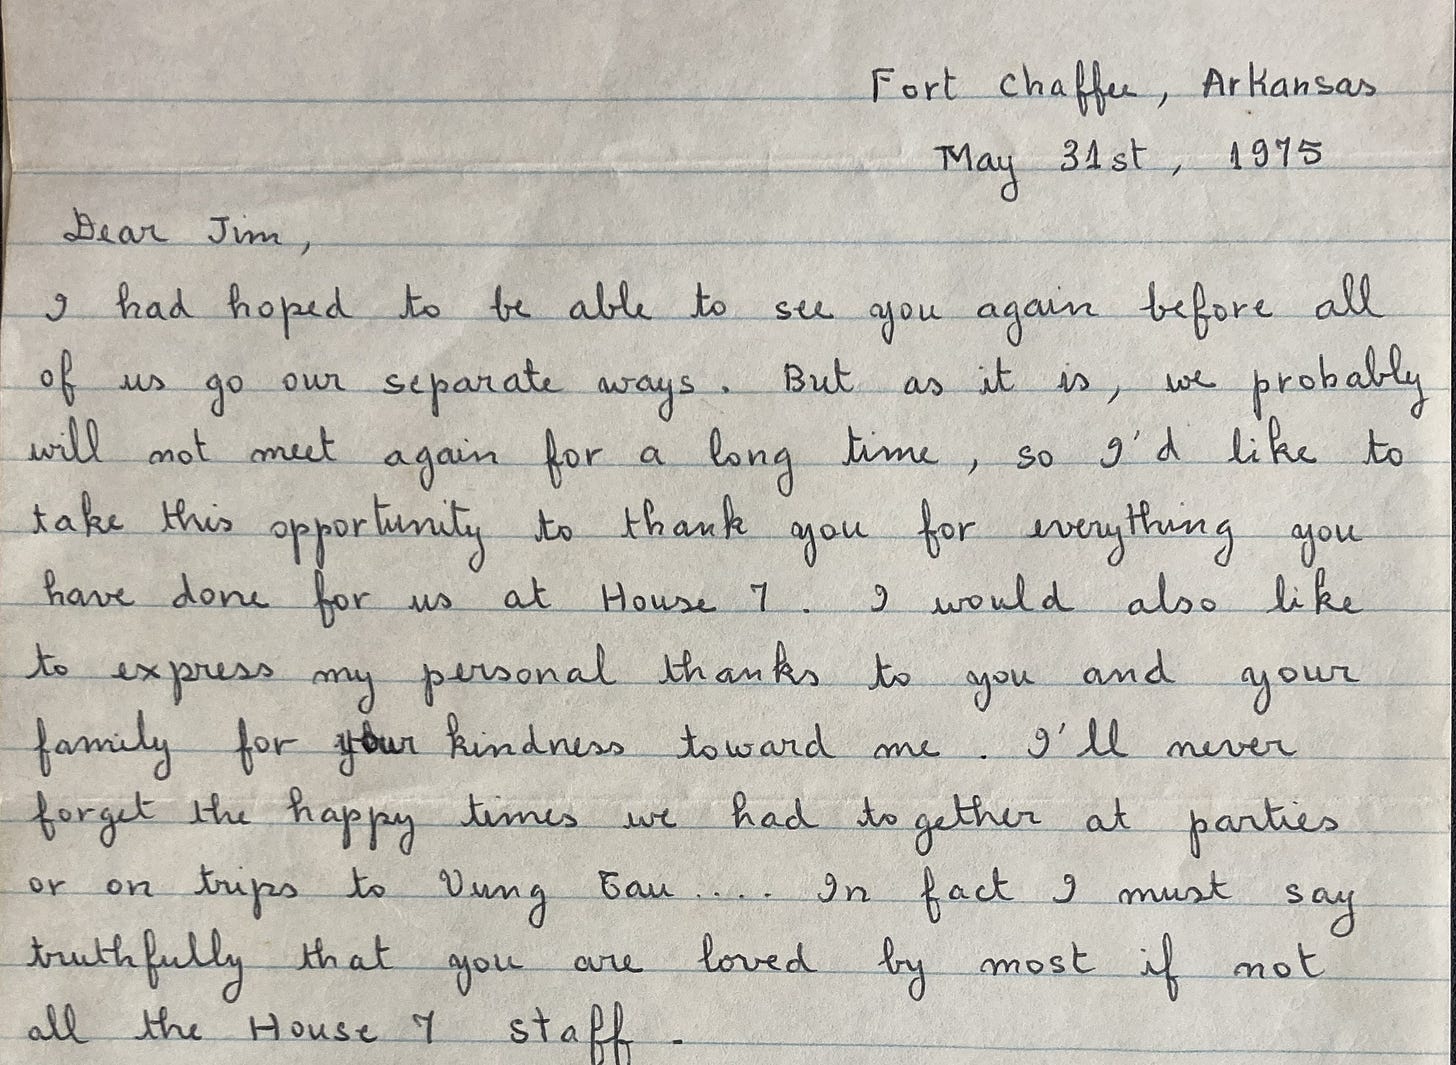 Fort Chaffee, Arkansas
May 31st, 1975
Dear Jim,
I had hoped to be able to see you again before all
of us go our separate ways. But as it is, we probably
will not meet again for a long time, so I'd like to
take this opportunity to thank you for everything you
have done for us at House 7. I would also like
to express my personal thanks to you and your
family for your kindness toward me. I'll never
forget the happy times we had together at parties
or on trips to Vung Tau.... In fact I must say
truthfully that you are loved by most if not
all the House 7 staff.